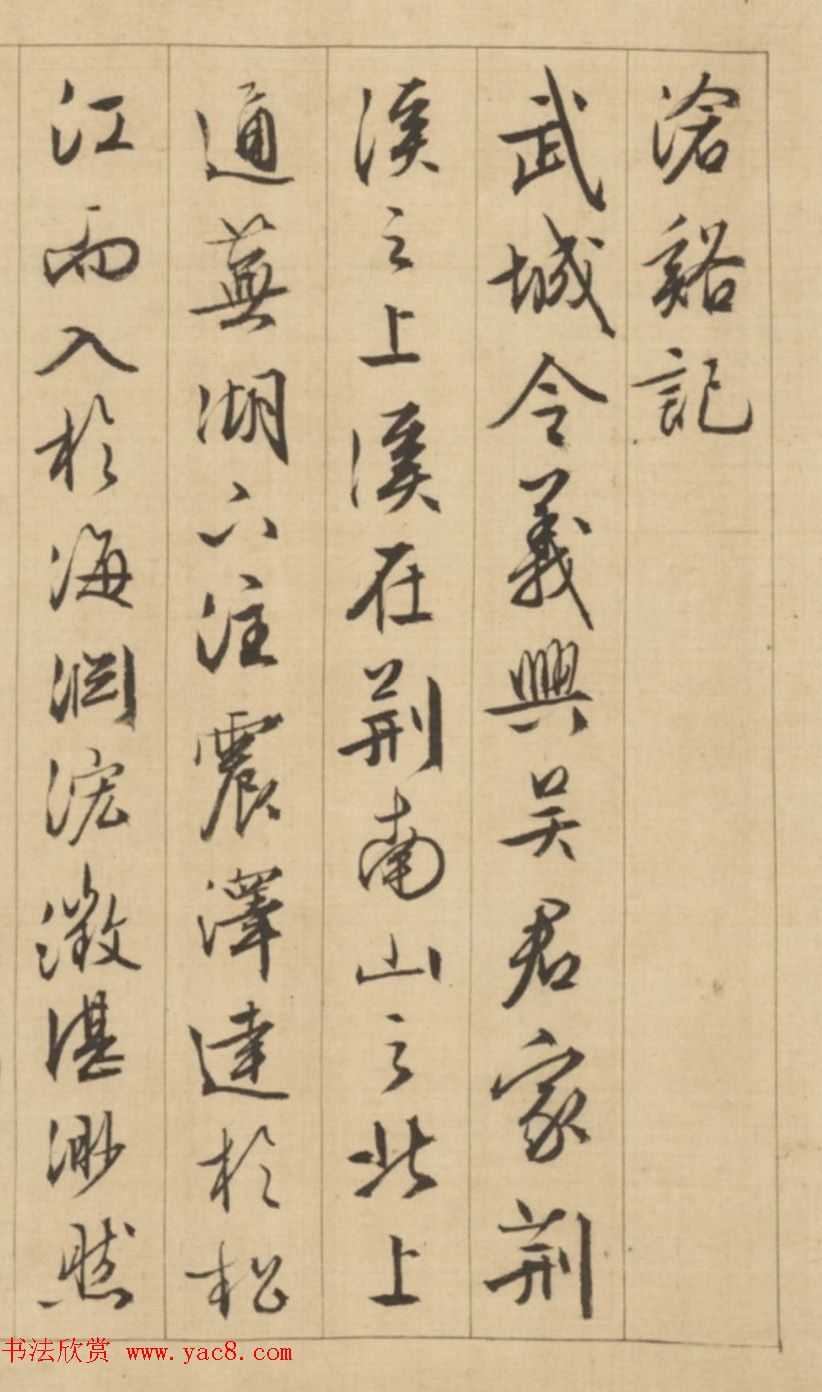 滄谿記
武城令義興吴君家荆
溪之上溪在荆南山之北上
通蕪湖下注震澤達於松
江而入於海渊浤澂湛渺然
书法欣赏 www.yac8.com